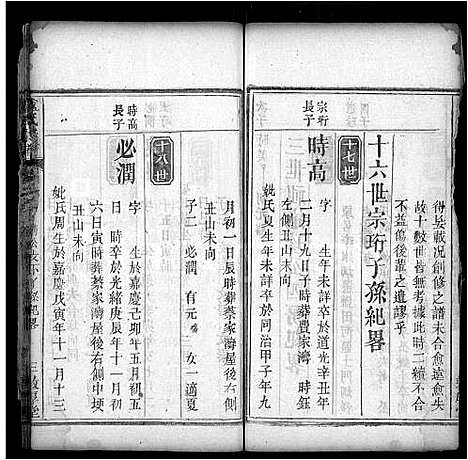 得妄載况創修之譜未合愈遠愈失
故十數世皆無考據此時二續不合
不益傷後輩之遺謬乎
十六世宗珩子孫紀畧
十七世
宗珩
長子
時高
字 生年未詳卒於道光
二月十九日子時葬賈家灣 時鈺
左側丑山未向
妣氏夏生年未詳卒於同治甲子年九
月初一日辰時葬蔡家灣屋後右
丑山未向
子二 必潤 有元 女一適夏
十八世
時高
長子
必潤
字 生於嘉慶己卯年五月初五
日 時卒於光緒庚辰年十一月初
六日寅時葬蔡家灣屋後右側中埂
丑山未向
妣氏周生於嘉慶戊寅年十一月十三